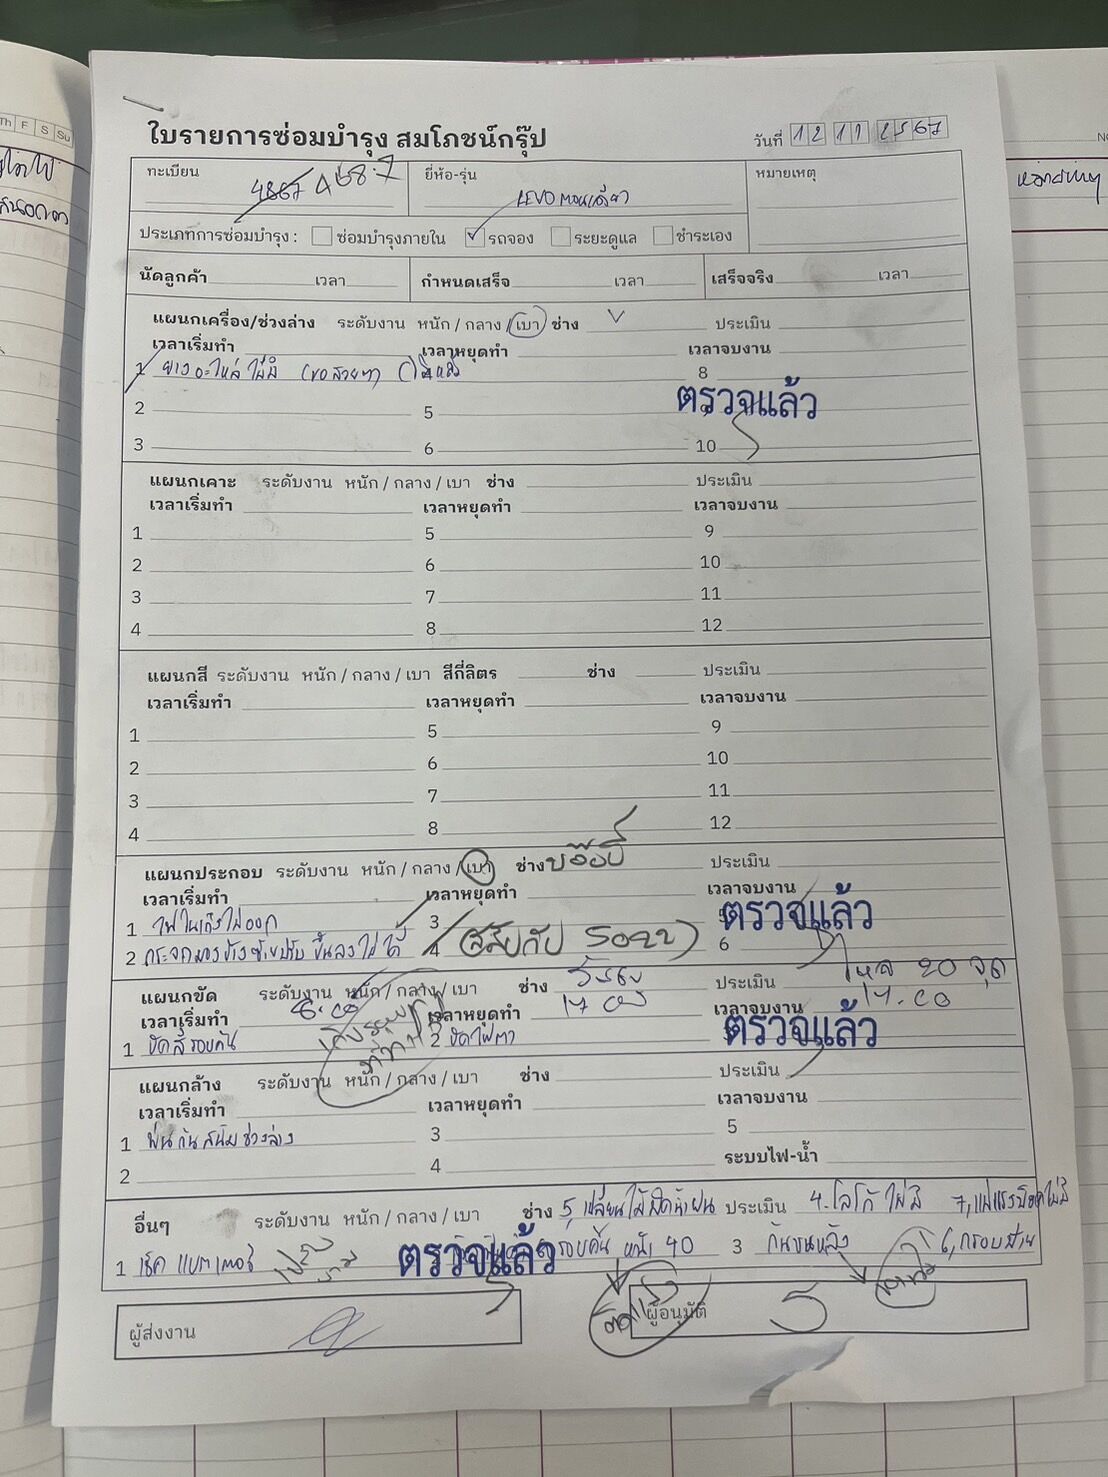 ใบรายการซ่อมบำรุง สมโภชน์กรุ๊ป
วันที่ 12 11 2567
ทะเบียน 4867
ยี่ห้อ-รุ่น REVO ตอนเดียว
หมายเหตุ
ประเภทการซ่อมบำรุง : ซ่อมบำรุงภายใน ✓ รถจอง ระยะดูแล ชำระเอง
นัดลูกค้า เวลา กำหนดเสร็จ เวลา เสร็จจริง เวลา
แผนกเครื่อง/ช่วงล่าง ระดับงาน หนัก / กลาง / เบา ช่าง ประเมิน
เวลาเริ่มทำ เวลาหยุดทำ เวลาจบงาน
1 ยางอะไหล่ไม่มี (ขอสวยๆ) 8
2 5 ตรวจแล้ว
3 6 10
แผนกเคาะ ระดับงาน หนัก / กลาง / เบา ช่าง ประเมิน
เวลาเริ่มทำ เวลาหยุดทำ เวลาจบงาน
1 5 9
2 6 10
3 7 11
4 8 12
แผนกสี ระดับงาน หนัก / กลาง / เบา สีกี่ลิตร ช่าง ประเมิน
เวลาเริ่มทำ เวลาหยุดทำ เวลาจบงาน
1 5 9
2 6 10
3 7 11
4 8 12
แผนกประกอบ ระดับงาน หนัก / กลาง / เบา ช่าง ประเมิน
เวลาเริ่มทำ เวลาหยุดทำ เวลาจบงาน
1 ไฟในเก๋งไม่ออก 3 5 ตรวจแล้ว
2 กระจกมองข้างซ้ายปรับขึ้นลงไม่ได้ 4 (สลับกับ 5022) 6
แผนกขัด ระดับงาน หนัก / กลาง / เบา ช่าง ประเมิน โหล 20 จุด
เวลาเริ่มทำ เวลาหยุดทำ เวลาจบงาน 17.00
1 ขัดสีรอบคัน 2 ขัดไฟตา ตรวจแล้ว
แผนกล้าง ระดับงาน หนัก / กลาง / เบา ช่าง ประเมิน
เวลาเริ่มทำ เวลาหยุดทำ เวลาจบงาน
1 พ่นกันสนิมช่วงล่าง 3 5
2 4 ระบบไฟ-น้ำ
อื่นๆ ระดับงาน หนัก / กลาง / เบา ช่าง 5, เปลี่ยนใบปัดน้ำฝน ประเมิน 4. โลโก้ ไม่มี
1 เช็ค แบตเตอรี่ ตรวจแล้ว รอบคัน หน้า 40 3 กันชนหลัง
ผู้ส่งงาน ผู้อนุมัติ